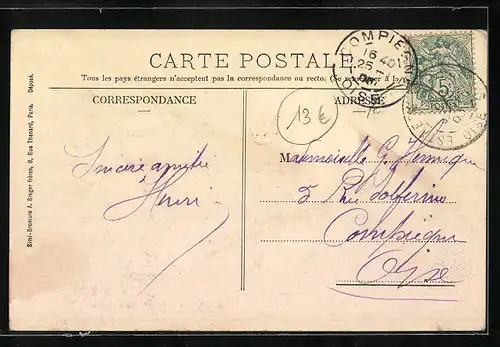 CARTE POSTALE
Tous les pays étrangers n'acceptent pas la correspondance au recto. (Se
CORRESPONDANCE
ADRESSE
COMPIEGNE
16
25
OISE
5
13 €
Sincère amitié
Henri
Mademoiselle G.
5 Rue Solferino
Compiègne
Oise
Simi-Bromure A. Breger frères, 9, Rue Thenard, Paris. Déposé.